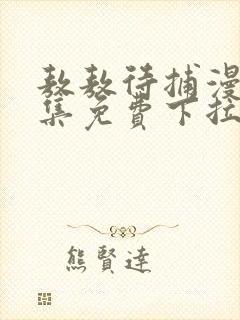 敖敖待捕漫
集免費下拉
熊賢達